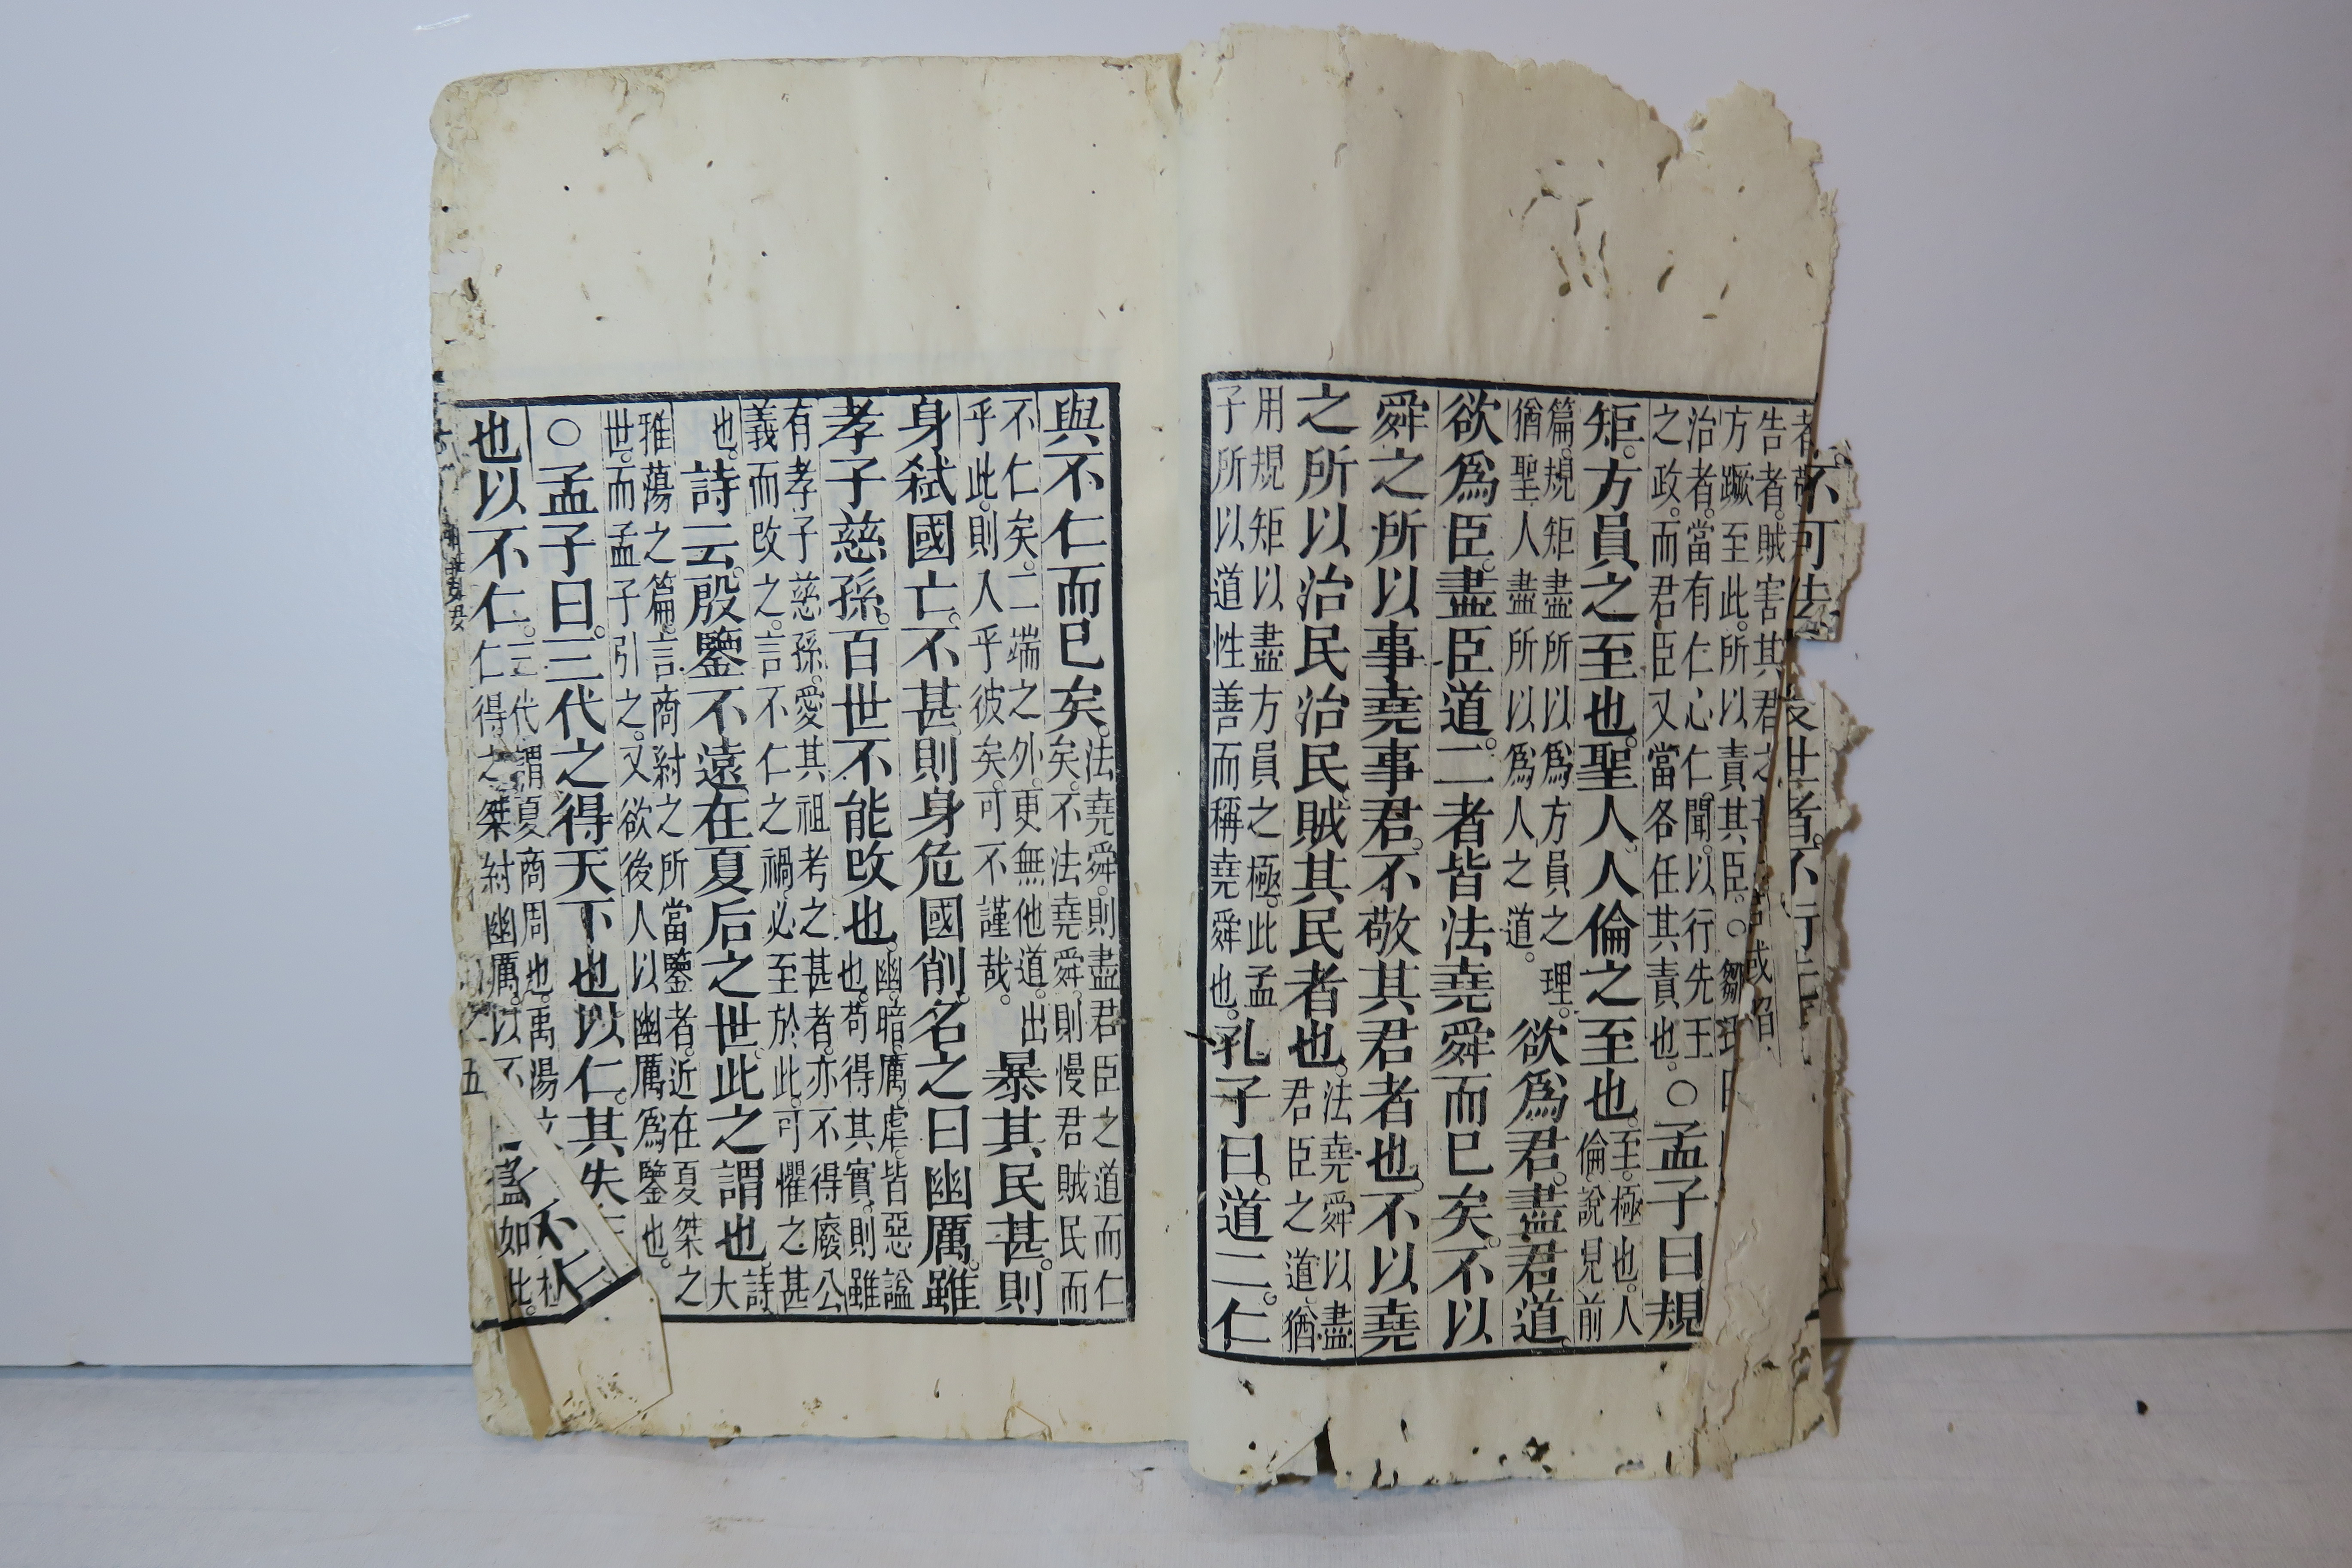 不可法
世者。不行
告者。賊害其君之
方蹶至此。所以責其臣。○鄒
治者。當有仁心仁聞。以行先王
之政。而君臣又當各任其責也。
○孟子曰。規
矩。方員之至也。聖人。人倫之至也。
至。極也。人
倫。說見前
篇。規矩盡所以爲方員之理。
猶聖人盡所以爲人之道。
欲爲君。盡君道。
欲爲臣。盡臣道。二者皆法堯舜而已矣。不以
舜之所以事堯事君。不敬其君者也。不以堯
之所以治民治民。賊其民者也。
法堯舜以盡
君臣之道。猶
用規矩以盡方員之極。此孟
子所以道性善而稱堯舜也。
孔子曰。道二。仁
與不仁而已矣。
法堯舜。則盡君臣之道而仁
矣。不法堯舜。則慢君賊民而
不仁矣。二端之外。更無他道。出
乎此。則入乎彼矣。可不謹哉。
暴其民甚。則
身弑國亡。不甚。則身危國削。名之曰幽厲。雖
孝子慈孫。百世不能改也。
幽。暗。厲。虐。皆惡謚
也。苟得其實。則雖
有孝子慈孫。愛其祖考之甚者。亦不得廢公
義而改之。言不仁之禍。必至於此。可懼之甚
也。
詩云。殷鑒不遠。在夏后之世。此之謂也。
詩大
雅蕩之篇。言商紂之所當鑒者。近在夏桀之
世。而孟子引之。又欲後人以幽厲爲鑒也。
○孟子曰。三代之得天下也以仁。其失
也以不仁。
三代謂夏商周也。禹湯
仁得之桀紂幽厲。以不
如此。